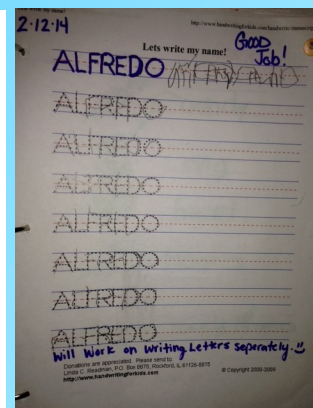 2·12·14
Lets write my name!
GOOD
Job!
ALFREDO
ALFREDO
ALFREDO
ALFREDO
ALFREDO
ALFREDO
ALFREDO
ALFREDO
Will Work on Writing Letters seperately.
Donations are appreciated. Please send to:
Linda C. Readman, P.O. Box 6875, Rockford, IL 61126-6875
http://www.handwritingforkids.com
© Copyright 2000-2006